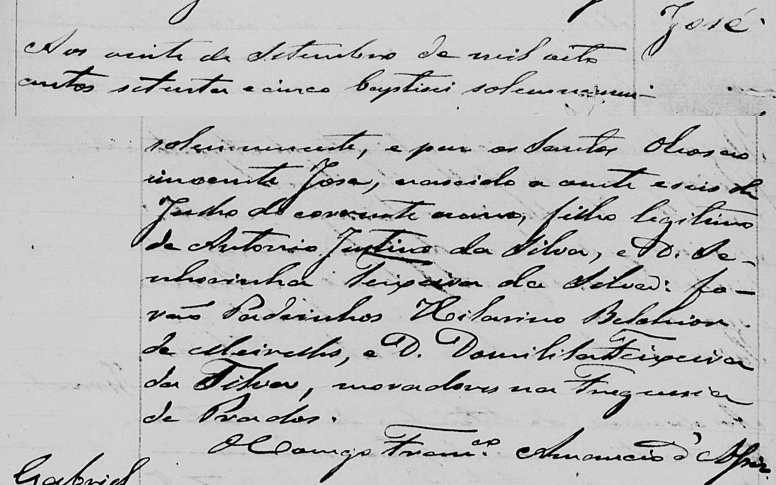 José
Aos vinte de Setembro de mil oito
centos setenta e cinco baptisei solemnemen-
solemnemente, e pur os Santos Oleos ao
innocente Jose, nascido a vinte e seis de
Julho do corrente anno, filho legitimo
de Antonio Justino da Silva, e D. Se-
nhorinha Teixeira da Silva: fo-
rão Padrinhos Hilarino Belchior
de Meirelles, e D. Domilita Teixeira
da Silva, moradores na Freguesia
de Prados.
O Conego Franco. Amancio d'
Gabriel